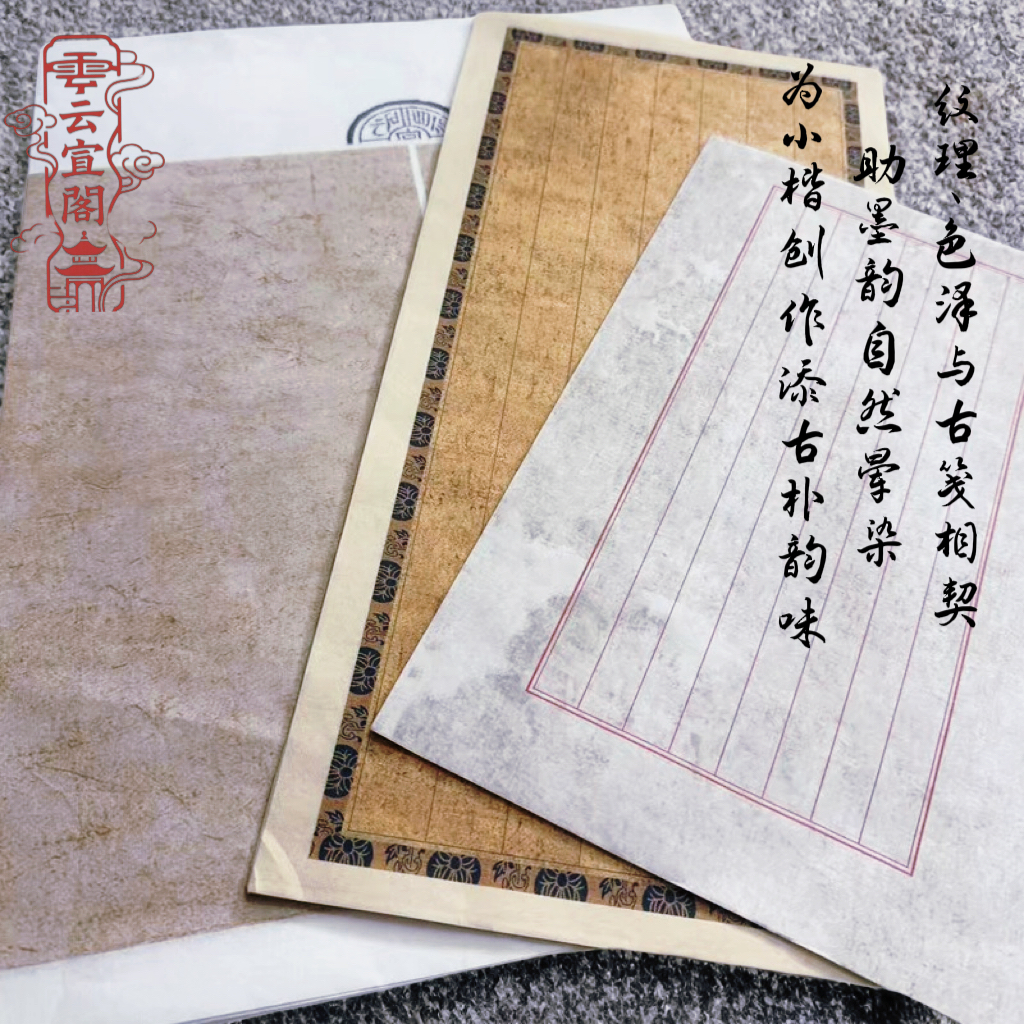 纹理、色泽与古笺相契
助墨韵自然晕染
为小楷创作添古朴韵味
云宣閣